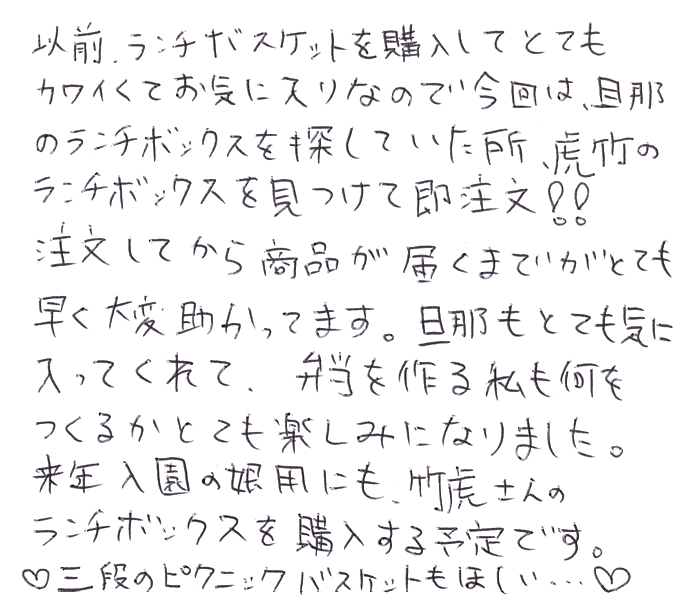 以前、ランチバスケットを購入してとても
カワイくてお気に入りなので今回は、旦那
のランチボックスを探していた所、虎竹の
ランチボックスを見つけて即注文!!
注文してから商品が届くまでがとても
早く大変助かってます。旦那もとても気に
入ってくれて、弁当を作る私も何を
つくるかとても楽しみになりました。
来年入園の娘用にも、竹虎さんの
ランチボックスを購入する予定です。
♡三段のピクニックバスケットもほしい…♡